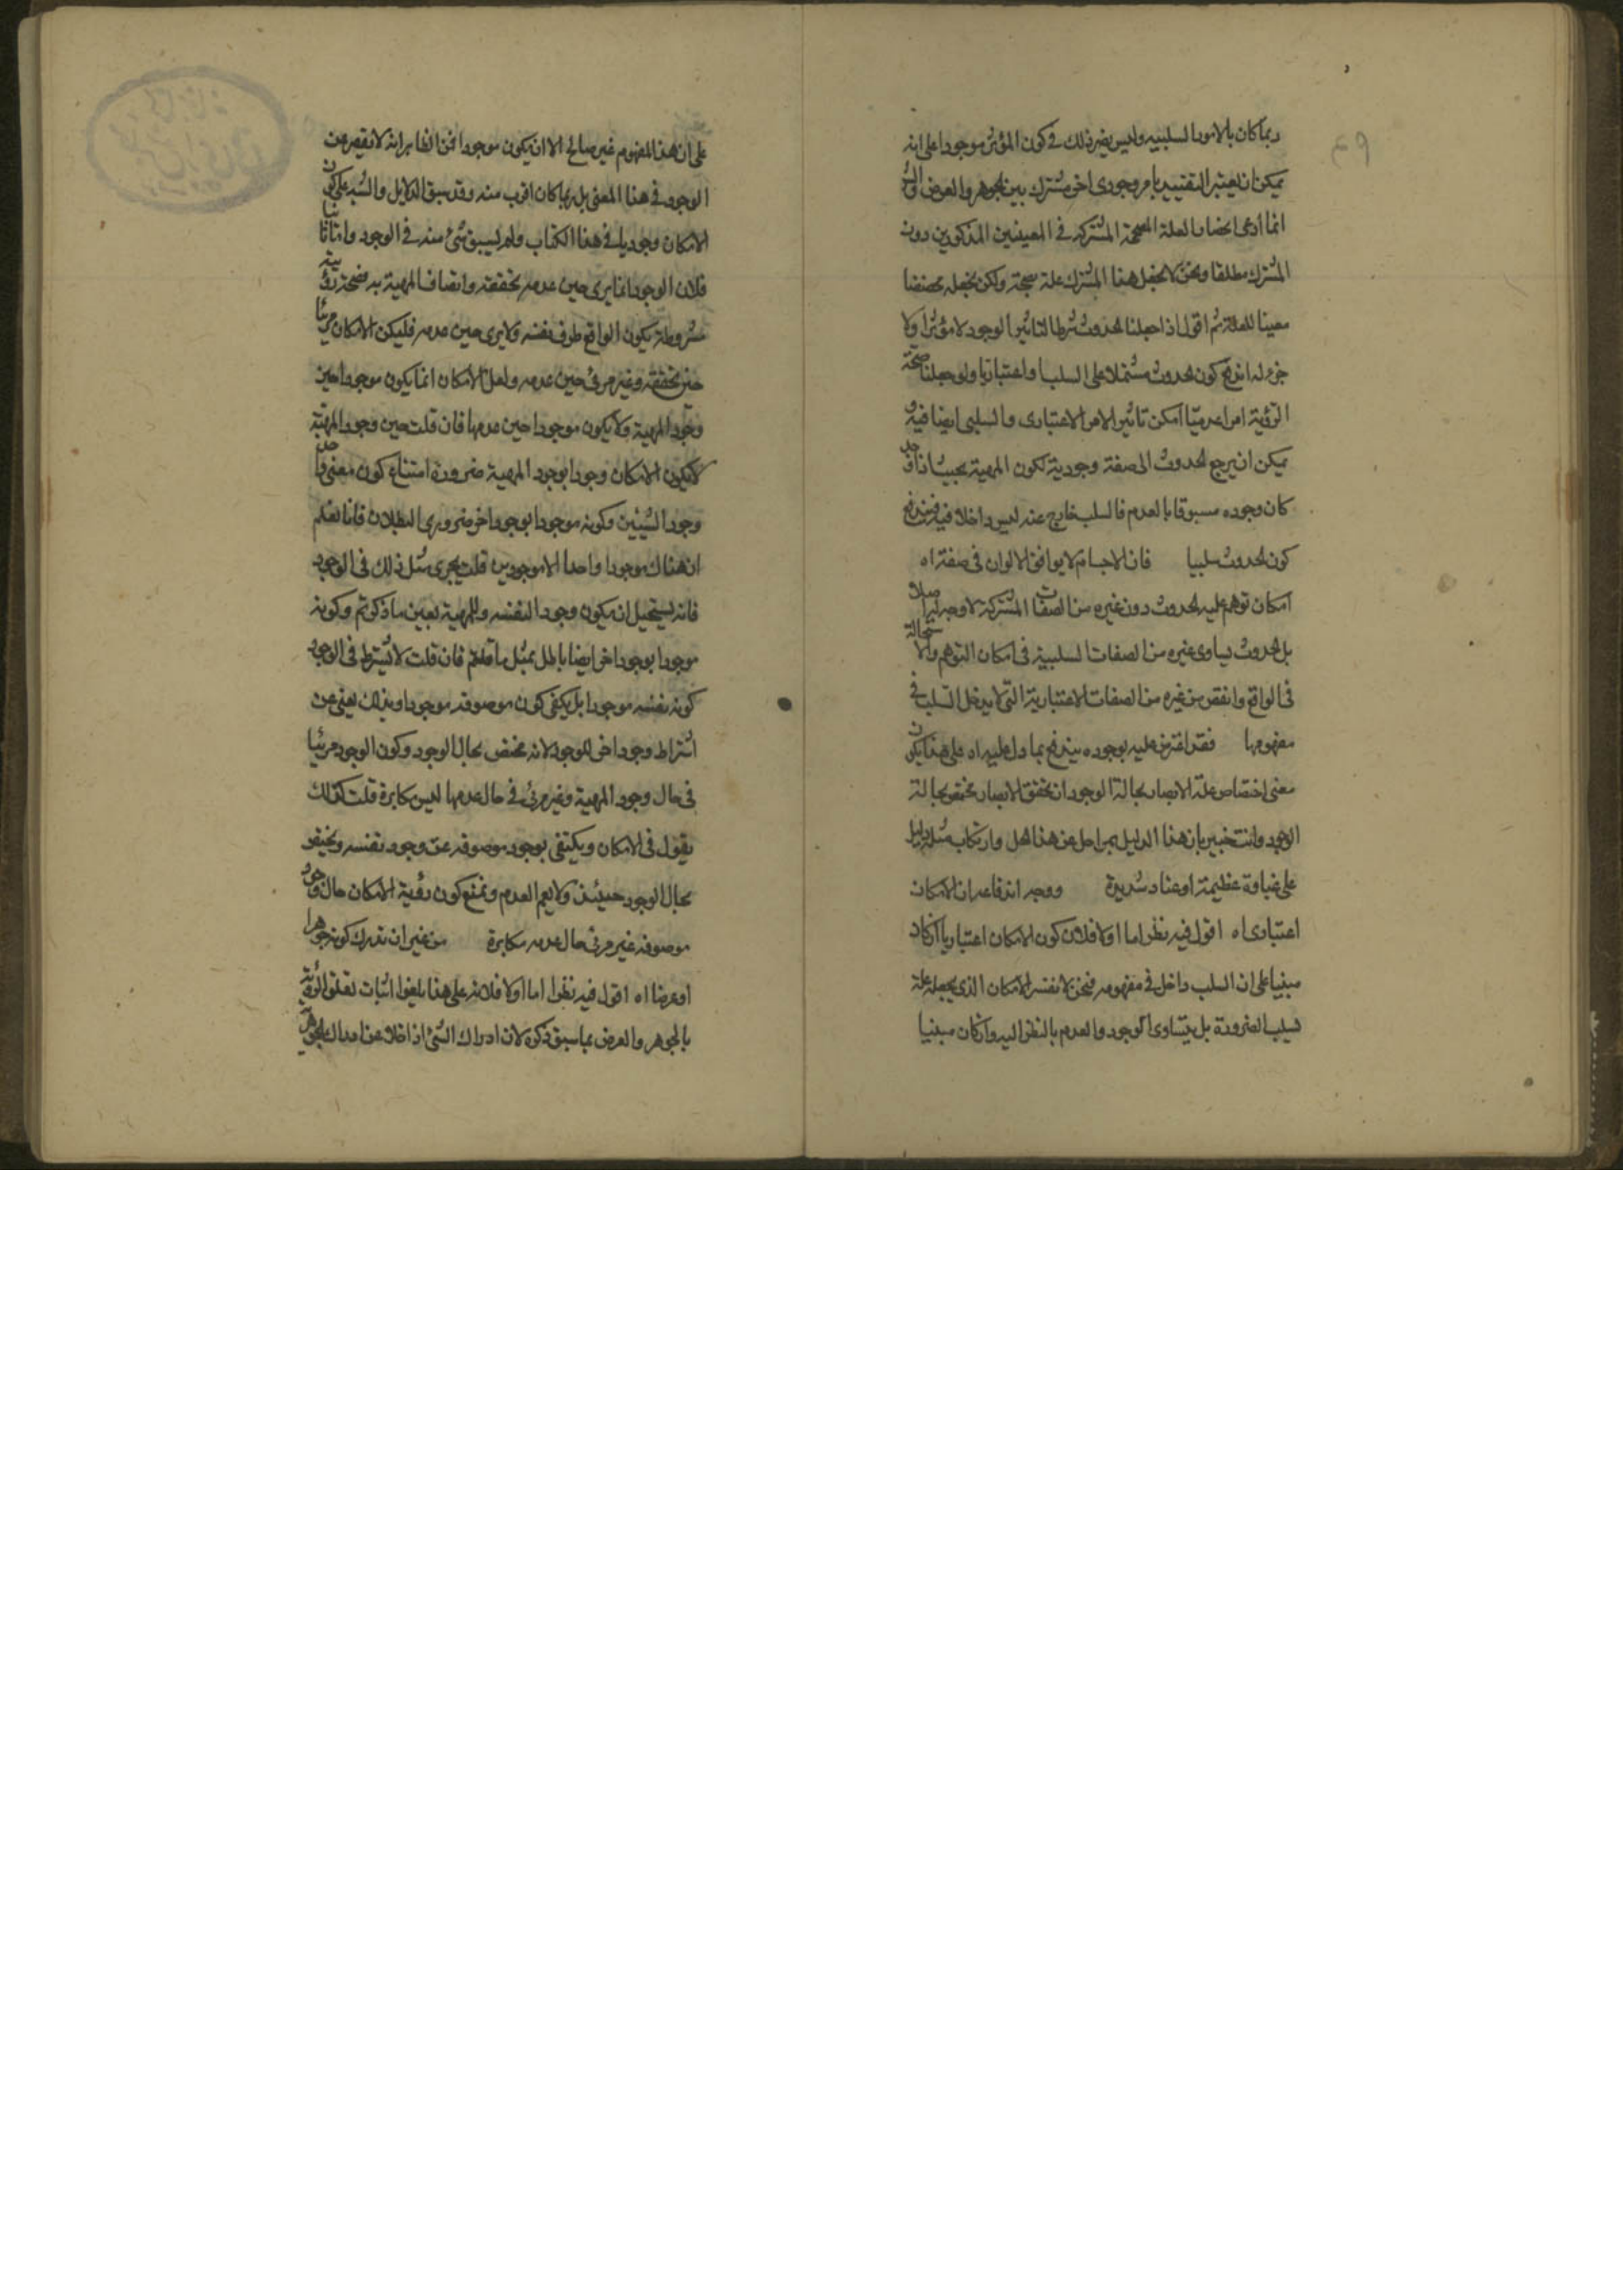 ربما كان بالامور السلبيه وليس يضر ذلك في كون المؤثر موجودا على انه
يمكن ان يعتبر التقييد بامر وجودى اخر مشترك بين الجوهر والعرض
انما ادعى انحصار العلة المصححة المشتركة في المعنيين المذكورين دون
المشترك مطلقا ونحن لا نجعل هذا المشترك علة صحة ولكن نجعله مخصصا
معينا للعلة ثم اقول اذا جعلنا الحدوث شرطا لتاثير الوجود لا مؤثرا ولا
جزء له اندفع كون الحدوث مشتملا على السلب او اعتباريا ولو جعلنا صحة
الرؤية امرا عدميا امكن تاثير الامر الاعتبارى والسلبى ايضا فيه و
يمكن ان يرجع الحدوث الى صفة وجودية لكون المهية بحيث اذا وجد
كان وجوده مسبوقا بالعدم فالسلب خارج عنه ليس داخلا فيه فيندفع
كون الحدوث سلبيا فان الاجسام لا يوافق الالوان في صفة اه
امكان توهم عليه الحدوث دون غيره من الصفات المشتركة لا وجه له اصلا
بل الحدوث يساوى غيره من الصفات السلبية في امكان التوهم والاستحالة
في الواقع وانقص من غيره من الصفات الاعتبارية التى لا يدخل السلب في
مفهومها فقد اعترض عليه بوجوه يندفع بما دل عليه اه على هذا يكون
معنى اختصاص علة الابصار بحالة الوجود ان تحقق الابصار مختص بحالة
الوجود وانت خبير بان هذا الدليل بمراحل عن هذا الحمل وارتكاب مثله دليل
على غباوة عظيمة او عناد شديدة ووجه اندفاعه ان الامكان
اعتبارى اه اقول فيه نظر اما اولا فلان كون الامكان اعتباريا ان كان
مبنيا على ان السلب داخل في مفهومه فنحن لا نفسر الامكان الذى يجعله علة
بسلب الضرورة بل بتساوى الوجود والعدم بالنظر اليه وان كان مبنيا
على ان هذا المفهوم غير صالح الا ان يكون موجودا فمن الظاهر انه لا يقصر عن
الوجود في هذا المعنى بل ربما كان اقرب منه وقد سبق الدلايل والشبه على كون
الامكان وجوديا في هذا الكتاب ولم يسبق شئ منه في الوجود واما ثانيا
فلان الوجود انما يرى حين عدمه تحققه واتصاف المهية به فصحة رؤيته
مشروطة بكون الواقع ظرف نفسه ولا يرى حين عدمه فليكن الامكان مرئيا
حين تحققه وغير مرئى حين عدمه ولعل الامكان انما يكون موجودا حين
وجود المهية ولا يكون موجودا حين عدمها فان قلت حين وجود المهية
لا يكون الامكان وجودا بوجود المهية ضرورة امتناع كون معنى واحد
وجودا لشيئين وكونه موجودا بوجود اخر ضرورى البطلان فانا نعلم
ان هناك موجودا واحدا لا موجودين قلت يجرى مثل ذلك في الوجود
فانه يستحيل ان يكون وجودا لنفسه وللمهية بعين ما ذكرتم وكونه
موجودا بوجود اخر ايضا باطل بمثل ما قلتم فان قلت لا يشترط في الوجود
كونه بنفسه موجودا بل يكفى كون موصوفه موجودا وبذلك يعنى عن
اشتراط وجود اخر للوجود لانه مختص بحال الوجود وكون الوجود مرئيا
في حال وجود المهية وغير مرئى في حال عدمها ليس مكابرة قلت كذلك
يقول في الامكان ويكتفى بوجود موصوفه عن وجود نفسه ويختص
بحال الوجود حينئذ ولا يعم العدم ونمنع كون رؤية الامكان حال وجود
موصوفه غير مرئى حال عدمه مكابرة من غير ان ندرك كونه جوهرا
او عرضا اه اقول فيه نظر اما اولا فلانه على هذا يلغوا اثبات تعلق الرؤية
بالجوهر والعرض بما سبق ذكره لان ادراك الشئ اذا خلا عن ادراك